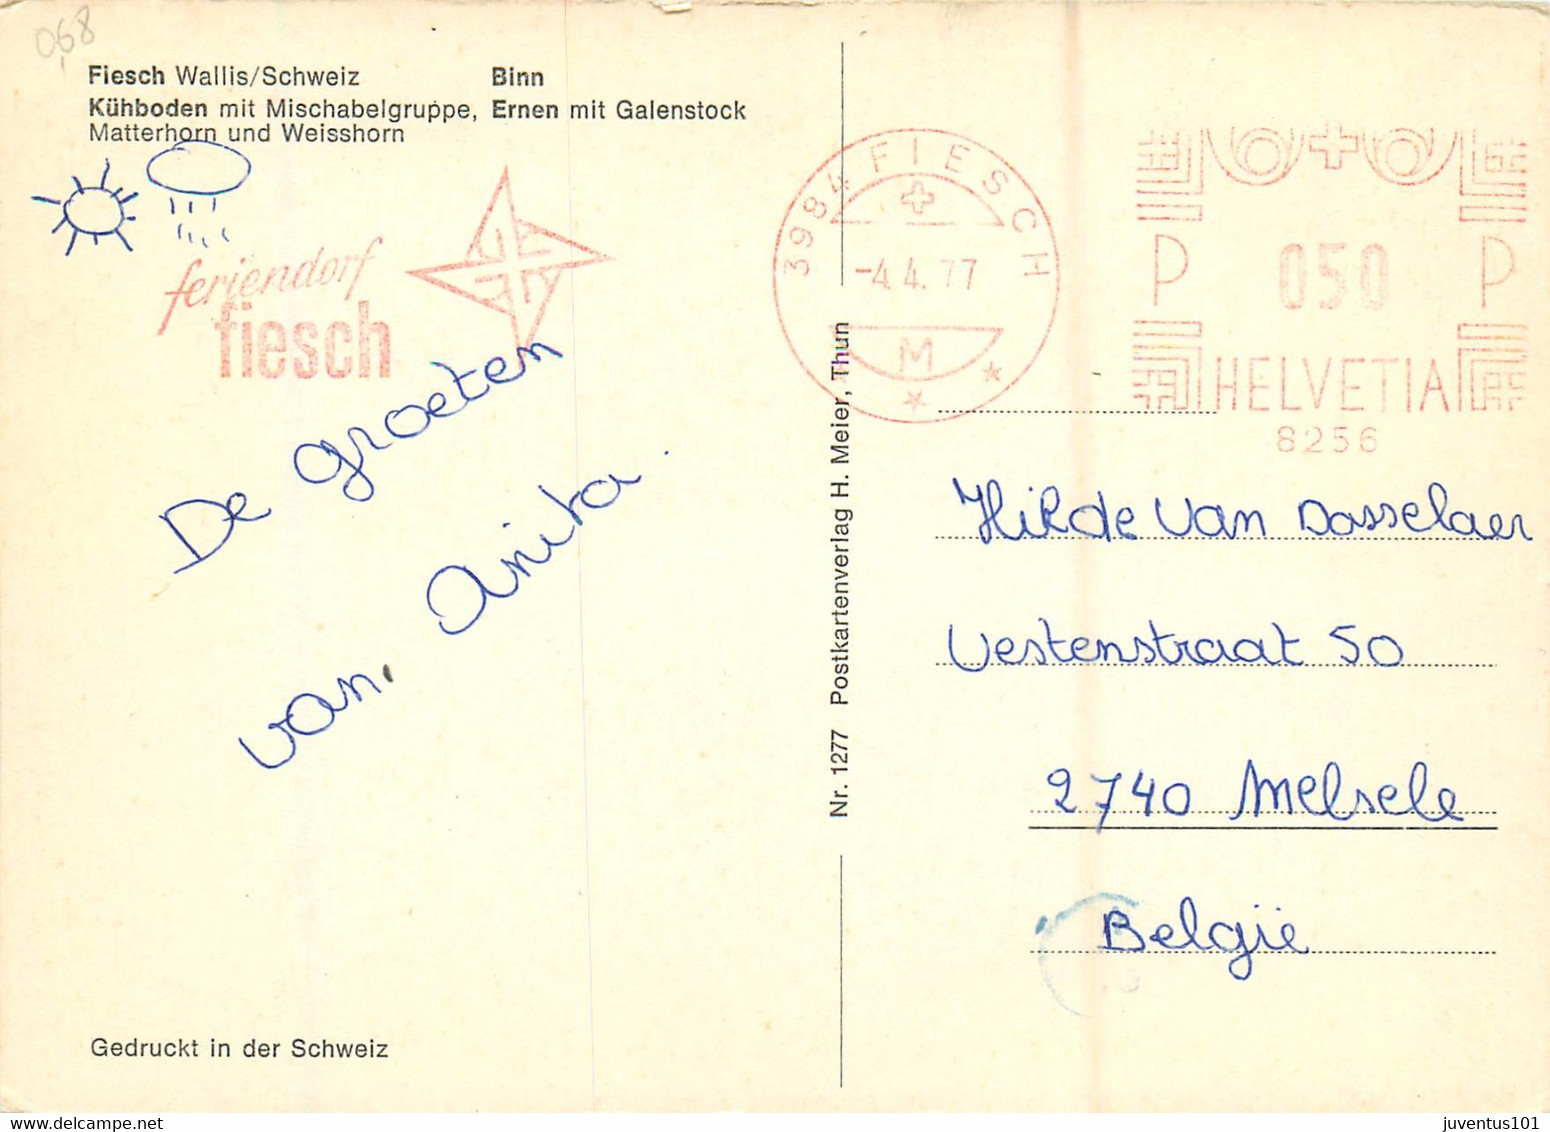 068
Fiesch Wallis/Schweiz
Kühboden mit Mischabelgruppe,
Matterhorn und Weisshorn
Binn
Ernen mit Galenstock
feriendorf
fiesch
De groeten
van Anita.
3984 FIESCH
-4.4.77
M
P 050 P
HELVETIA
8256
Nr. 1277 Postkartenverlag H. Meier, Thun
Hilde Van Dasselaer
Vestenstraat 50
2740 Melsele
België
Gedruckt in der Schweiz
www.delcampe.net
juventus101